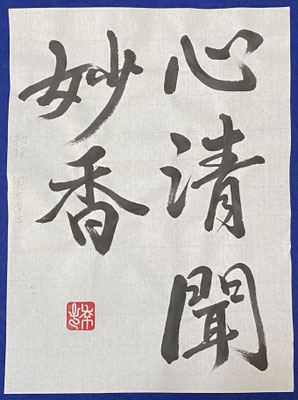 心清聞
妙香